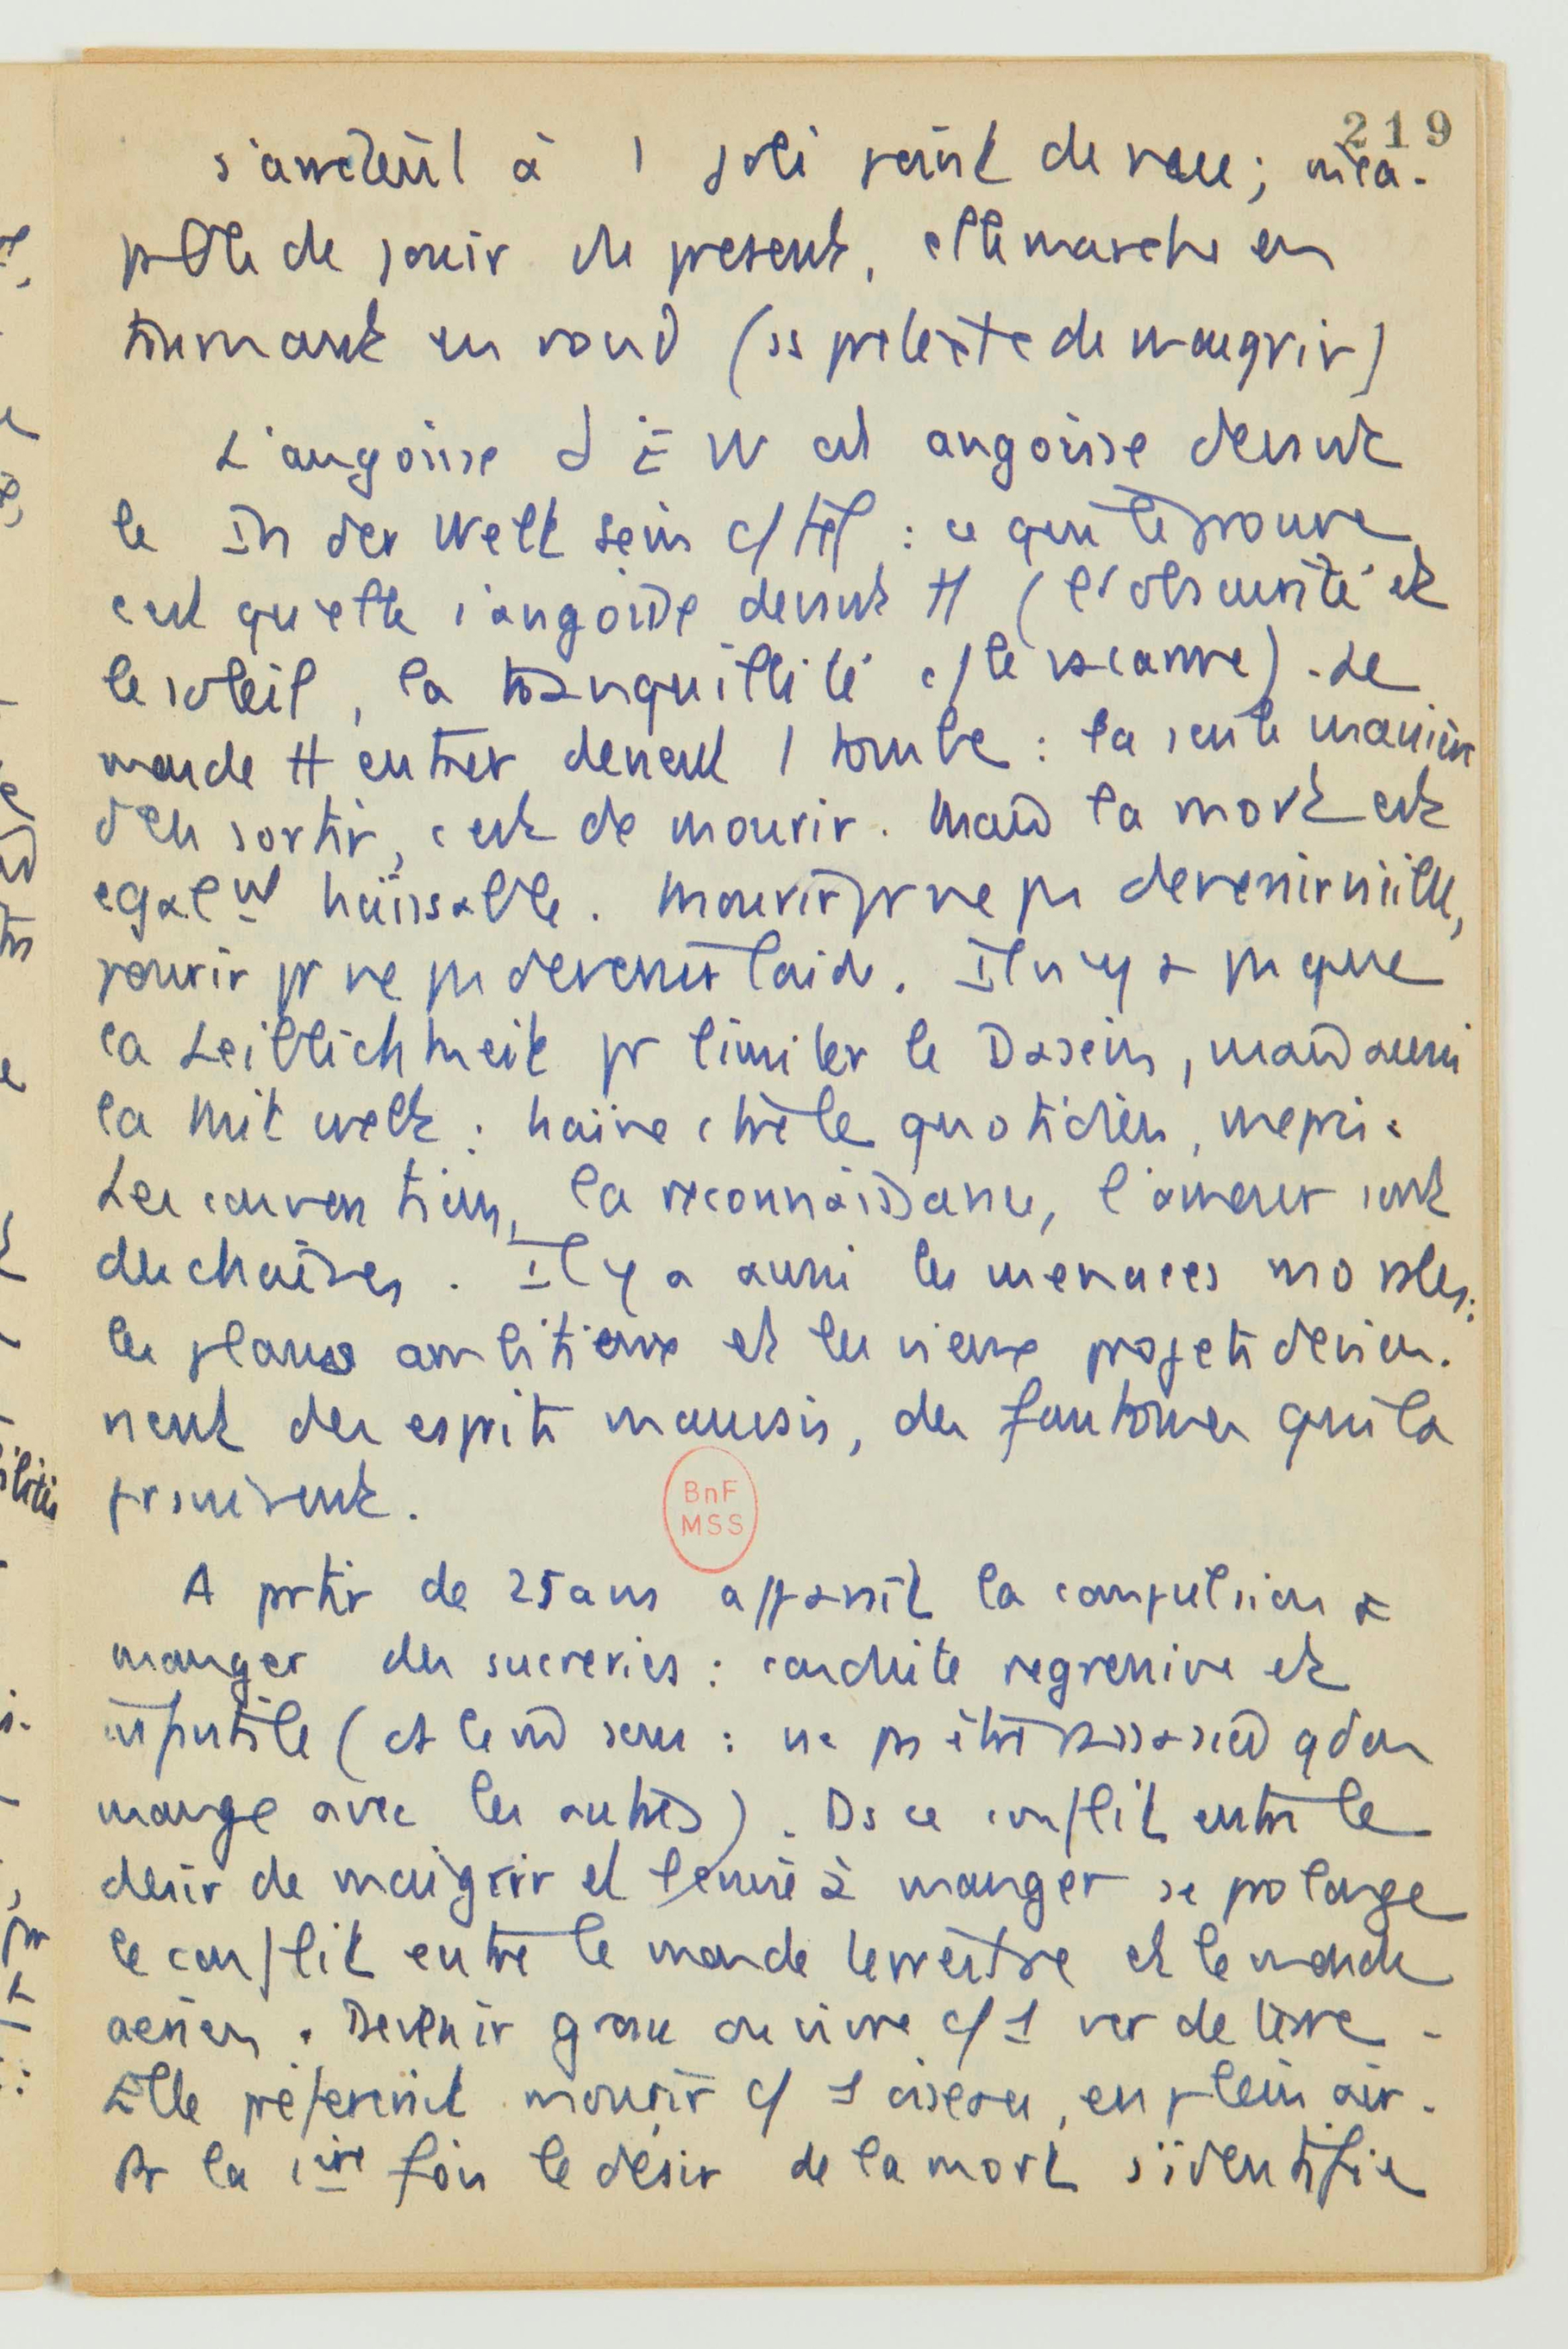 219
s'arrêtent à 1 joli point de vue ; inca-
pble de jouir du present, elle marche en
tournant en rond (ss pretexte de maigrir)
L'angoisse d'E W est angoisse devant
le In der Welt sein c/ tel : ce qui le prouve
c'est qu'elle s'angoisse devant tt (l'obscurité et
le soleil, la tranquillité c/ le vacarme). Le
monde tt entier devient 1 tombe : la seule manière
d'en sortir, c'est de mourir. Mais la mort est
egalmt haïssable. Mourir pr ne ps devenir vieille,
pourir pr ne ps devenir laide. Il n'y a ps que
la Leiblichkeit pr limiter le Dasein, mais aussi
la Mit welt : haine ctre le quotidien, mepris.
Les conventions, la reconnaissance, l'amour sont
des chaînes. Il y a aussi les menaces morales :
les plans ambitieux et les vieux projets devien-
nent des esprits mauvais, des fantomes qui la
prsuivent.
BnF
MSS
A prtir de 25 ans apparait la compulsion à
manger des sucreries : conduite regressive et
infantile (et le vrai sens : ne ps être rassasié qd on
mange avec les autres). Ds ce conflit entre le
desir de maigrir et l'envie à manger se prolonge
le conflit entre le monde terrestre et le monde
aerien. Devenir grosse ou vivre c/ 1 ver de terre.
Elle préférerait mourir c/ 1 oiseau, en plein air.
Pr la 1ère fois le désir de la mort s'identifie